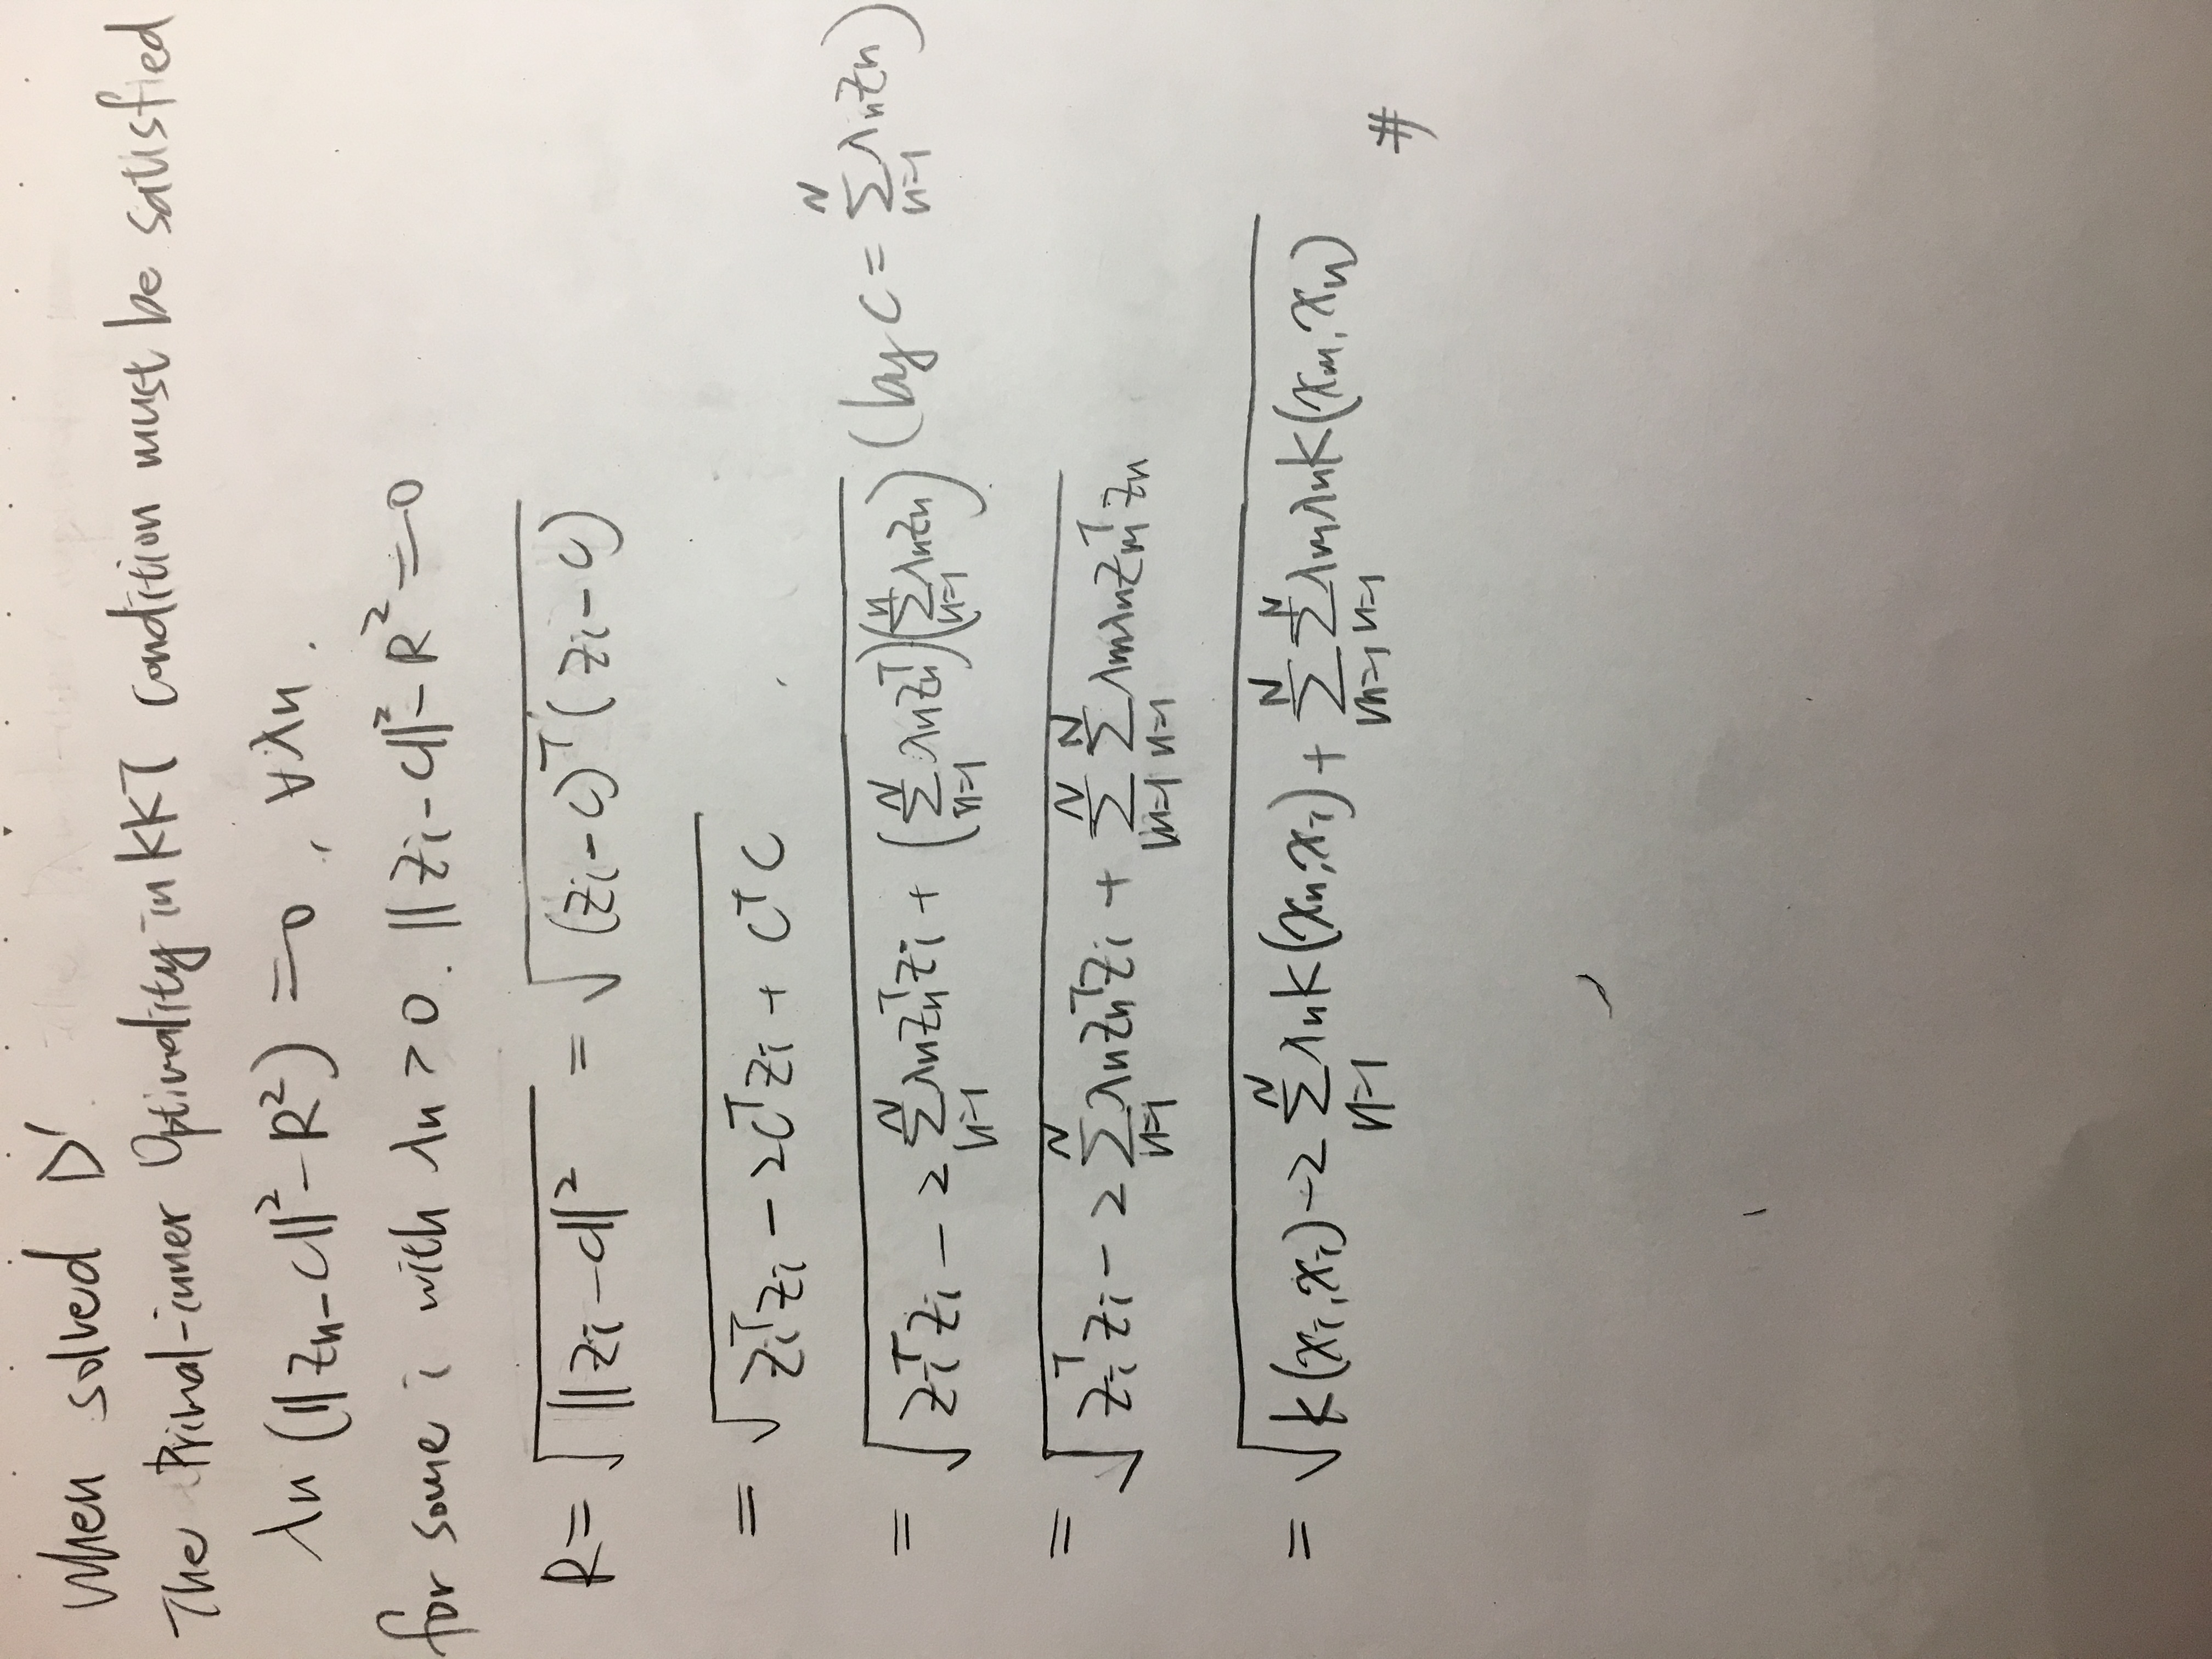 When solved D'
The Primal-inner Optimality in KKT condition must be satisfied
λn (||zn-c||² - R²) = 0, ∀λn.
for some i with λn > 0. ||zi-c||² - R² = 0
R = √(||zi-c||²) = √((zi-c)ᵀ(zi-c))
= √(ziᵀzi - 2cᵀzi + cᵀc)
= √(ziᵀzi - 2 Σ_{n=1}^{N} λn znᵀzi + (Σ_{n=1}^{N} λn znᵀ)(Σ_{n=1}^{n} λn zn)) (by c = Σ_{n=1}^{N} λn zn)
= √(ziᵀzi - 2 Σ_{n=1}^{N} λn znᵀzi + Σ_{m=1}^{N} Σ_{n=1}^{N} λm λn zmᵀzn)
= √(k(xi, xi) - 2 Σ_{n=1}^{N} λn k(xn, xi) + Σ_{m=1}^{N} Σ_{n=1}^{N} λm λn k(xm, xn))
#